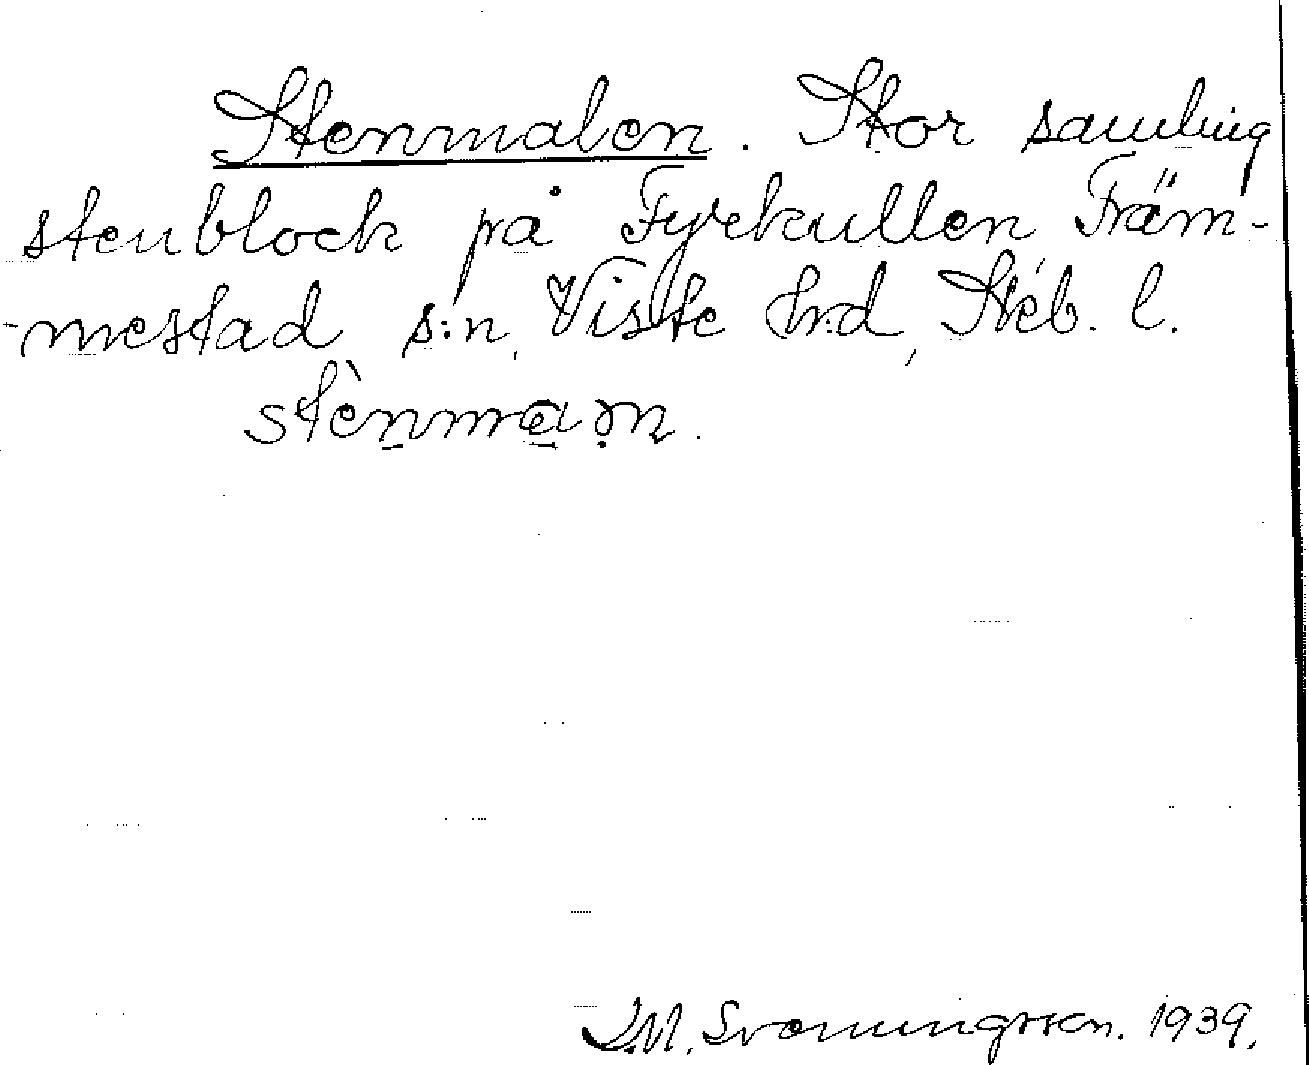 Stenmalen. Stor samling
stenblock på Fyrkullen Främ-
-mestad s:n, Viste hrd, Skb. l.
J.M. Svenningsson. 1939.